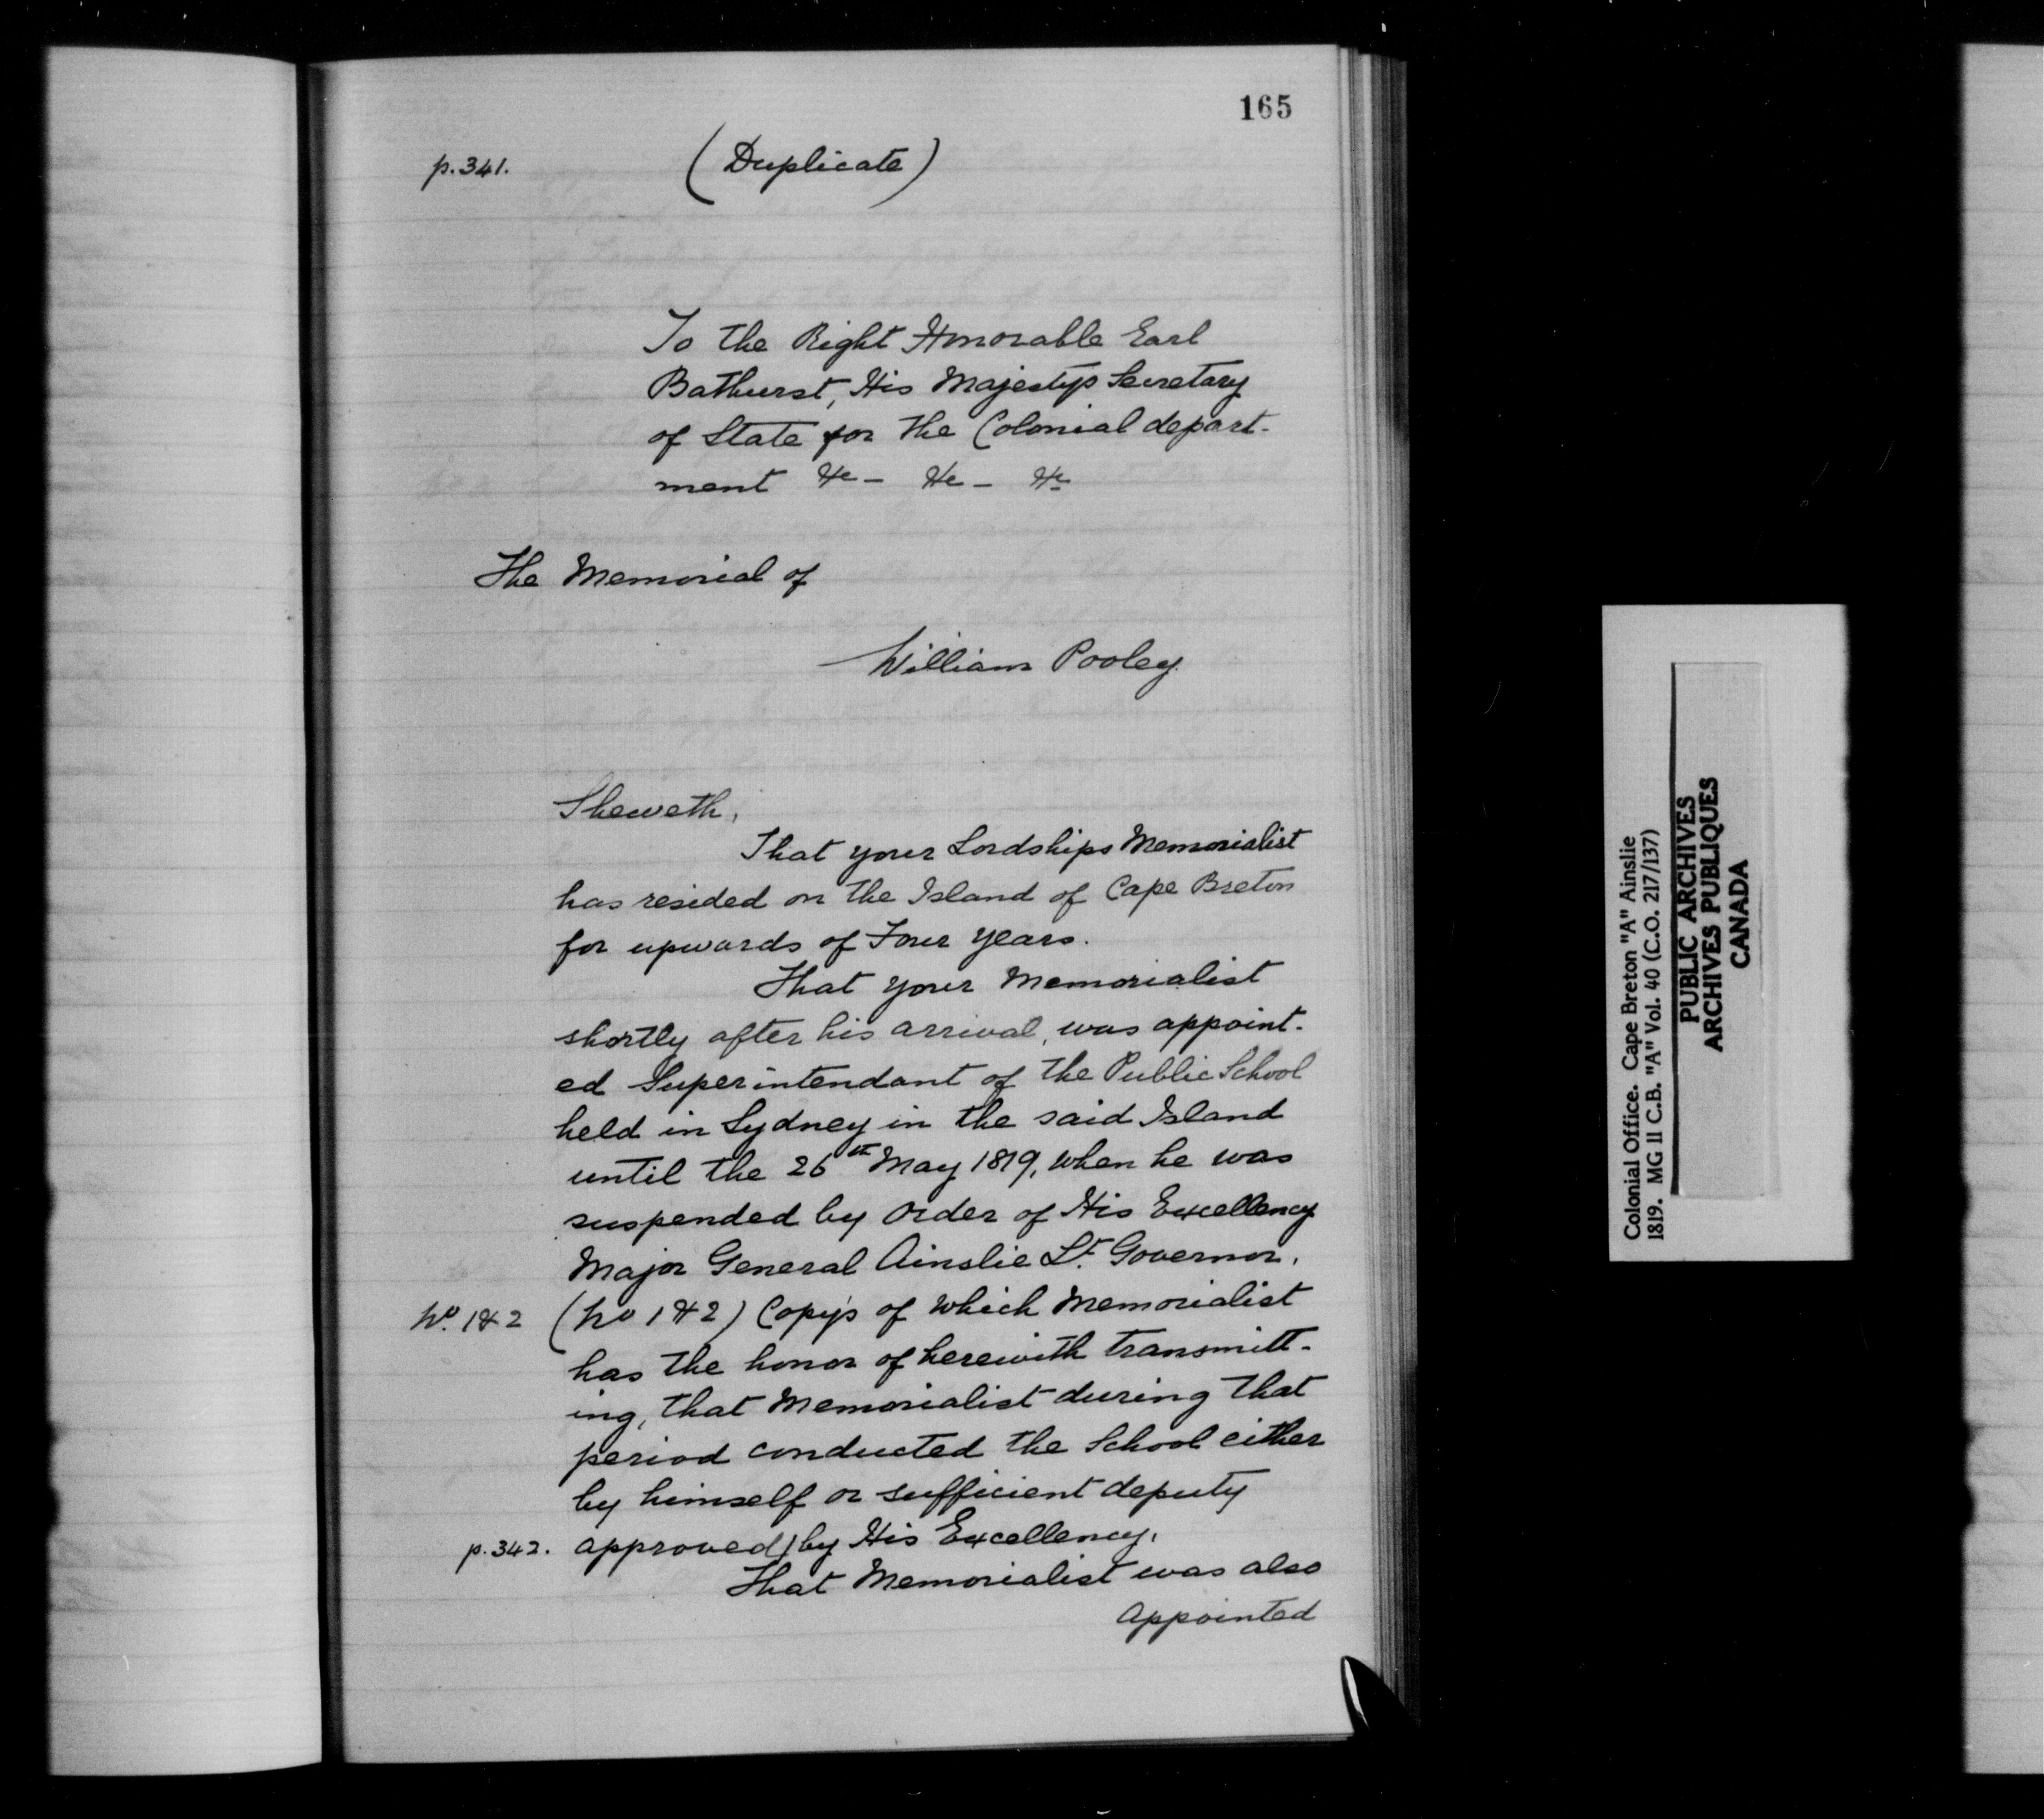 165
p.341. (Duplicate)
To the Right Honorable Earl
Bathurst, His Majestys Secretary
of State for the Colonial depart-
ment &c - &c - &c
The Memorial of
William Pooley.
Sheweth,
That your Lordships Memorialist
has resided on the Island of Cape Breton
for upwards of Four years.
That your Memorialist
shortly after his arrival, was appoint-
ed Superintendant of the Public School
held in Sydney in the said Island
until the 26th May 1819, when he was
suspended by order of His Excellency
Major General Ainslie Lt. Governor,
No. 1&2 (No 1&2) Copys of which Memorialist
has the honor of herewith transmitt-
ing, that Memorialist during that
period conducted the School either
by himself or sufficient deputy
p.342. approved/by His Excellency.
That Memorialist was also
appointed
Colonial Office. Cape Breton "A" Ainslie
1819. MG 11 C.B. "A" Vol. 40 (C.O. 217/137)
PUBLIC ARCHIVES
ARCHIVES PUBLIQUES
CANADA